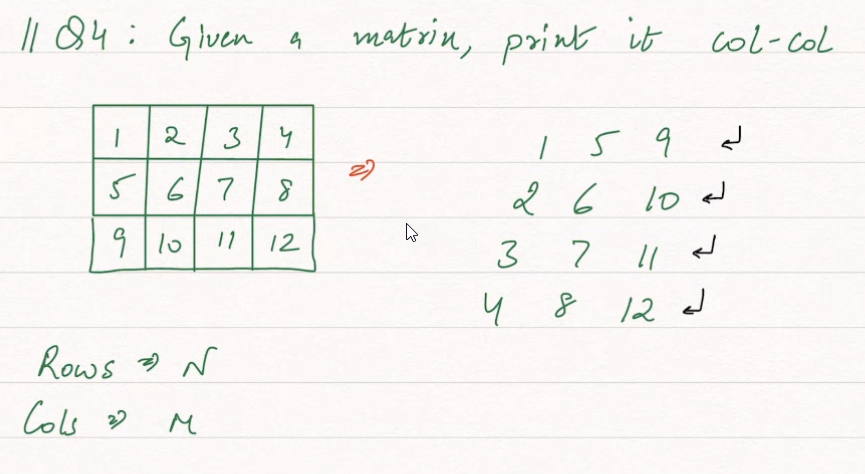 // Q4 : Given a matrix, print it col-col
1 2 3 4 ⇒ 1 5 9 ↵
5 6 7 8 2 6 10 ↵
9 10 11 12 3 7 11 ↵
4 8 12 ↵
Rows ⇒ N
Cols ⇒ M